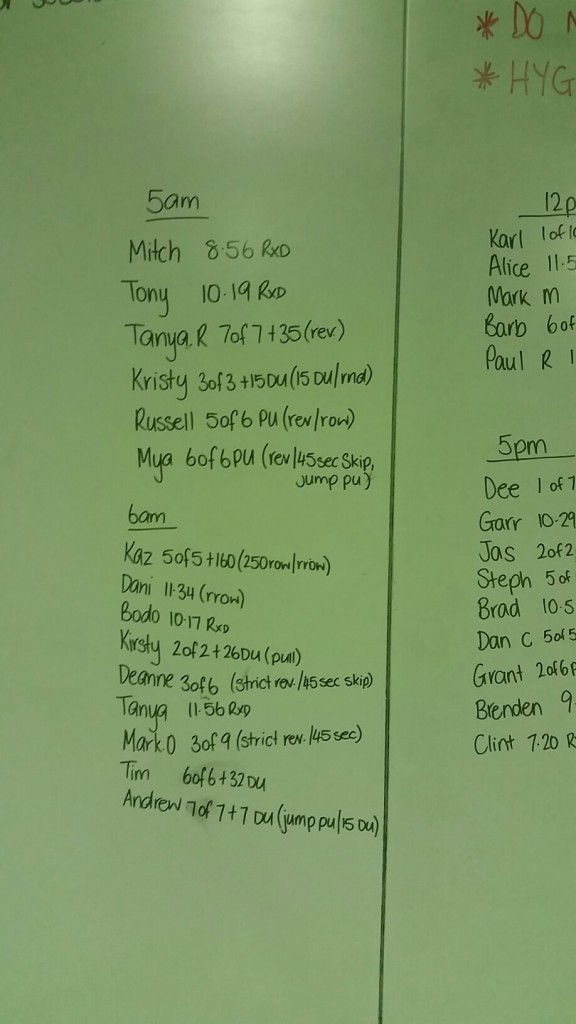 5am
Mitch 8.56 RXD
Tony 10.19 RXD
Tanya.R 7of7+35(rev)
Kristy 3of3+15DU(15DU/rnd)
Russell 5of6 PU(rev/row)
Mya 6of6PU (rev/45sec skip,
jump pu)
6am
Kaz 5of5+160(250row/rrow)
Dani 11.34 (rrow)
Bodo 10.17 RXD
Kirsty 2of2+26DU(pull)
Deanne 3of6 (strict rev./45sec skip)
Tanya 11.56 RXD
Mark.O 3of9 (strict rev./45sec)
Tim 6of6+32DU
Andrew 7of7+7 DU(jump pu/15DU)
* DO
* HYG
12p
Karl 1of10
Alice 11.5
Mark m
Barb 6of
Paul R 1
5pm
Dee 1 of 7
Garr 10.29
Jas 2of2
Steph 5of
Brad 10.5
Dan C 5of5
Grant 2of6P
Brenden 9.
Clint 7.20 R